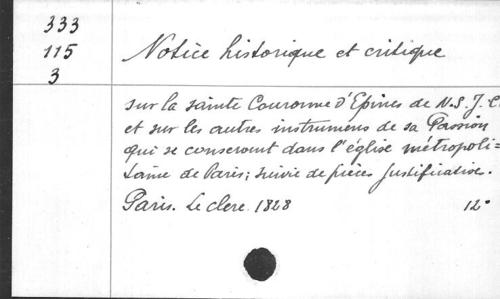 333
115
3
Notice historique et critique
sur la sainte Couronne d'Epines de N.S.J.C.
et sur les autres instrumens de sa Passion
qui se conservent dans l'église métropoli=
taine de Paris; suivie de pièces justificative.
Paris. Le clere 1828 12°